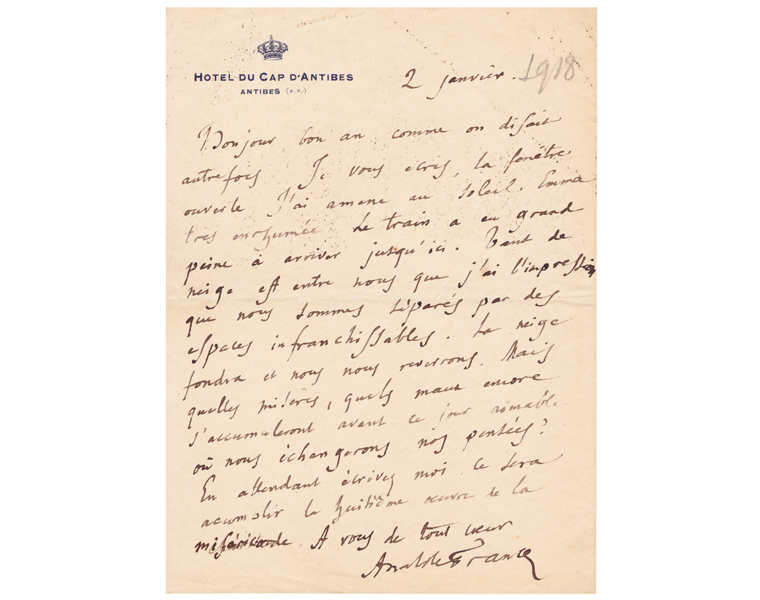 HOTEL DU CAP D'ANTIBES
ANTIBES (A.M.)
2 janvier. 1918
Bonjour, bon an comme on disait
autrefois Je vous écris, la fenêtre
ouverte J'ai amené au soleil. Emma
tres enrhumée Le train a eu grand
peine à arriver jusqu'ici. Tant de
neige est entre nous que j'ai l'impression
que nous sommes séparés par des
espaces infranchissables. La neige
fondra et nous nous reverrons. Mais
quelles misères, quels maux encore
s'accumuleront avant ce jour aimable
où nous échangerons nos pensées?
En attendant écrivez moi. Ce sera
accomplir la huitième œuvre de la
miséricorde. A vous de tout cœur
Anatole France